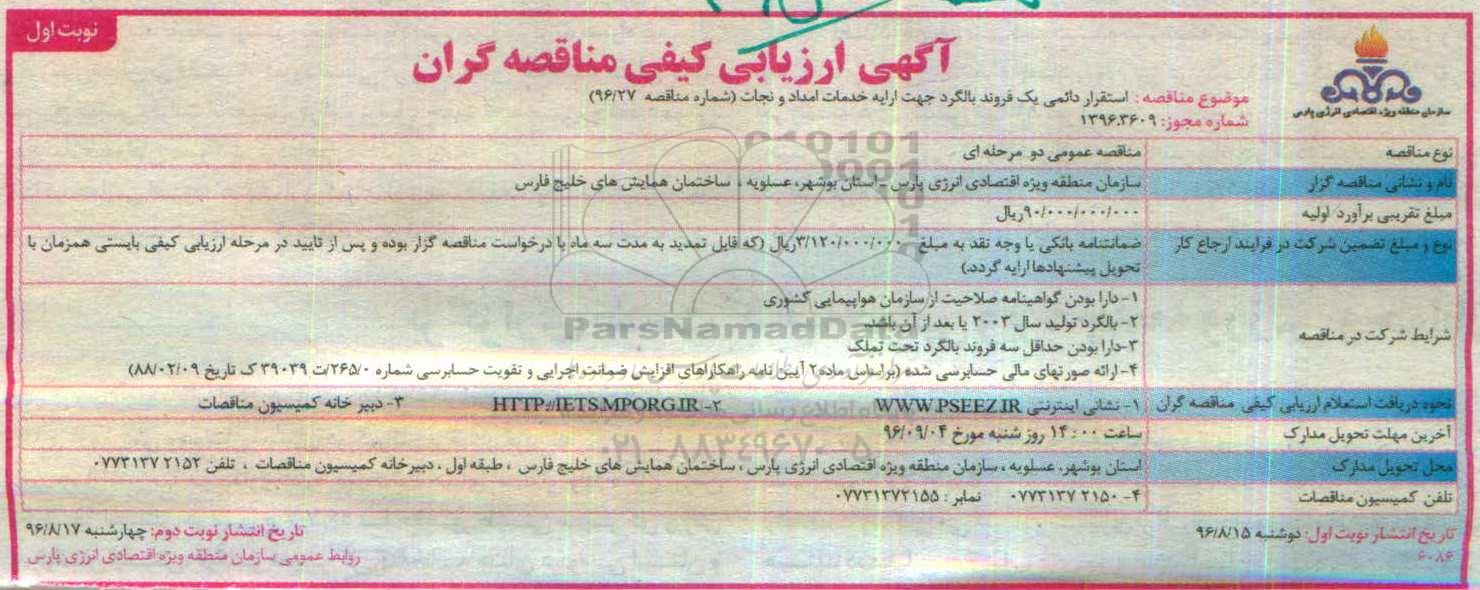 نوبت اول
آگهی ارزیابی کیفی مناقصه گران
سازمان منطقه ویژه اقتصادی انرژی پارس
موضوع مناقصه : استقرار دائمی یک فروند بالگرد جهت ارایه خدمات امداد و نجات (شماره مناقصه ۹۶/۲۷)
شماره مجوز: ۱۳۹۶.۳۶۰۹
نوع مناقصه مناقصه عمومی دو مرحله ای
نام و نشانی مناقصه گزار سازمان منطقه ویژه اقتصادی انرژی پارس - استان بوشهر، عسلویه ، ساختمان همایش های خلیج فارس
مبلغ تقریبی برآورد اولیه ۹۰/۰۰۰/۰۰۰/۰۰۰ریال
نوع و مبلغ تضمین شرکت در فرایند ارجاع کار ضمانتنامه بانکی یا وجه نقد به مبلغ ۳/۱۲۰/۰۰۰/۰۰۰ریال (که قابل تمدید به مدت سه ماه با درخواست مناقصه گزار بوده و پس از تایید در مرحله ارزیابی کیفی بایستی همزمان با
تحویل پیشنهادها ارایه گردد.)
شرایط شرکت در مناقصه
۱- دارا بودن گواهینامه صلاحیت از سازمان هواپیمایی کشوری
۲- بالگرد تولید سال ۲۰۰۳ یا بعد از آن باشد.
۳-دارا بودن حداقل سه فروند بالگرد تحت تملک
۴- ارائه صورتهای مالی حسابرسی شده (براساس ماده۲ آیین نامه راهکاراهای افزایش ضمانت اجرایی و تقویت حسابرسی شماره ۲۶۵/۰/ت ۳۹۰۳۹ ک تاریخ ۸۸/۰۲/۰۹)
نحوه دریافت استعلام ارزیابی کیفی مناقصه گران ۱- نشانی اینترنتی WWW.PSEEZ.IR ۲- HTTP://IETS.MPORG.IR ۳- دبیر خانه کمیسیون مناقصات
آخرین مهلت تحویل مدارک ساعت ۱۴:۰۰ روز شنبه مورخ ۹۶/۰۹/۰۴
محل تحویل مدارک استان بوشهر، عسلویه ، سازمان منطقه ویژه اقتصادی انرژی پارس ، ساختمان همایش های خلیج فارس ، طبقه اول ، دبیرخانه کمیسیون مناقصات ، تلفن ۲۱۵۲ ۰۷۷۳۱۳۷
تلفن کمیسیون مناقصات ۴- ۲۱۵۰ ۰۷۷۳۱۳۷ نمابر : ۰۷۷۳۱۳۷۲۱۵۵
تاریخ انتشار نوبت اول: دوشنبه ۹۶/۸/۱۵
تاریخ انتشار نوبت دوم: چهارشنبه ۹۶/۸/۱۷
۶۰۸۶
روابط عمومی سازمان منطقه ویژه اقتصادی انرژی پارس
ParsNamadData
۰۲۱-۸۸۳۴۹۶۷۰-۵